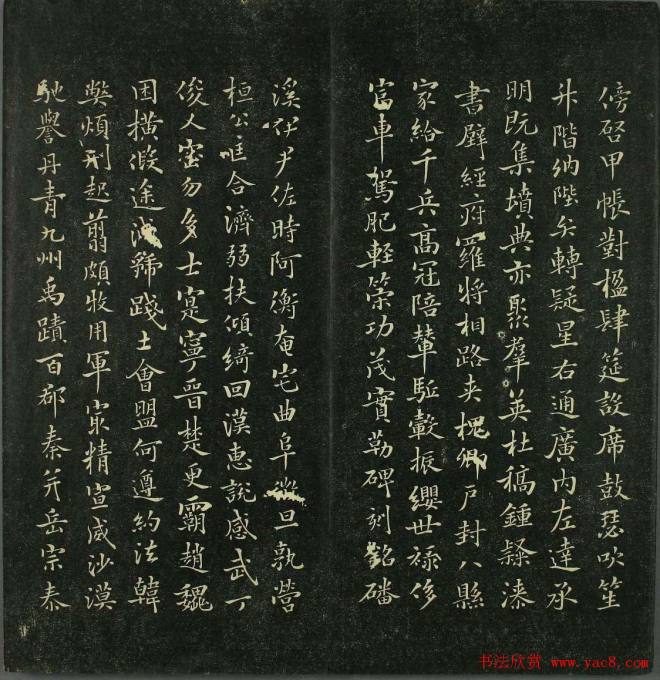 傍啓甲帳對楹肆筵設席鼓瑟吹笙
升階納陛弁轉疑星右通廣內左達承
明既集墳典亦聚羣英杜稿鍾隸漆
書壁經府羅將相路夾槐卿戶封八縣
家給千兵高冠陪輦驅轂振纓世祿侈
富車駕肥輕策功茂實勒碑刻銘磻
溪伊尹佐時阿衡奄宅曲阜微旦孰營
桓公匡合濟弱扶傾綺回漢惠說感武丁
俊乂密勿多士寔寧晉楚更霸趙魏
困橫假途滅虢踐土會盟何遵約法韓
弊煩刑起翦頗牧用軍最精宣威沙漠
馳譽丹青九州禹蹟百郡秦并岳宗泰
书法欣赏 www.yac8.com